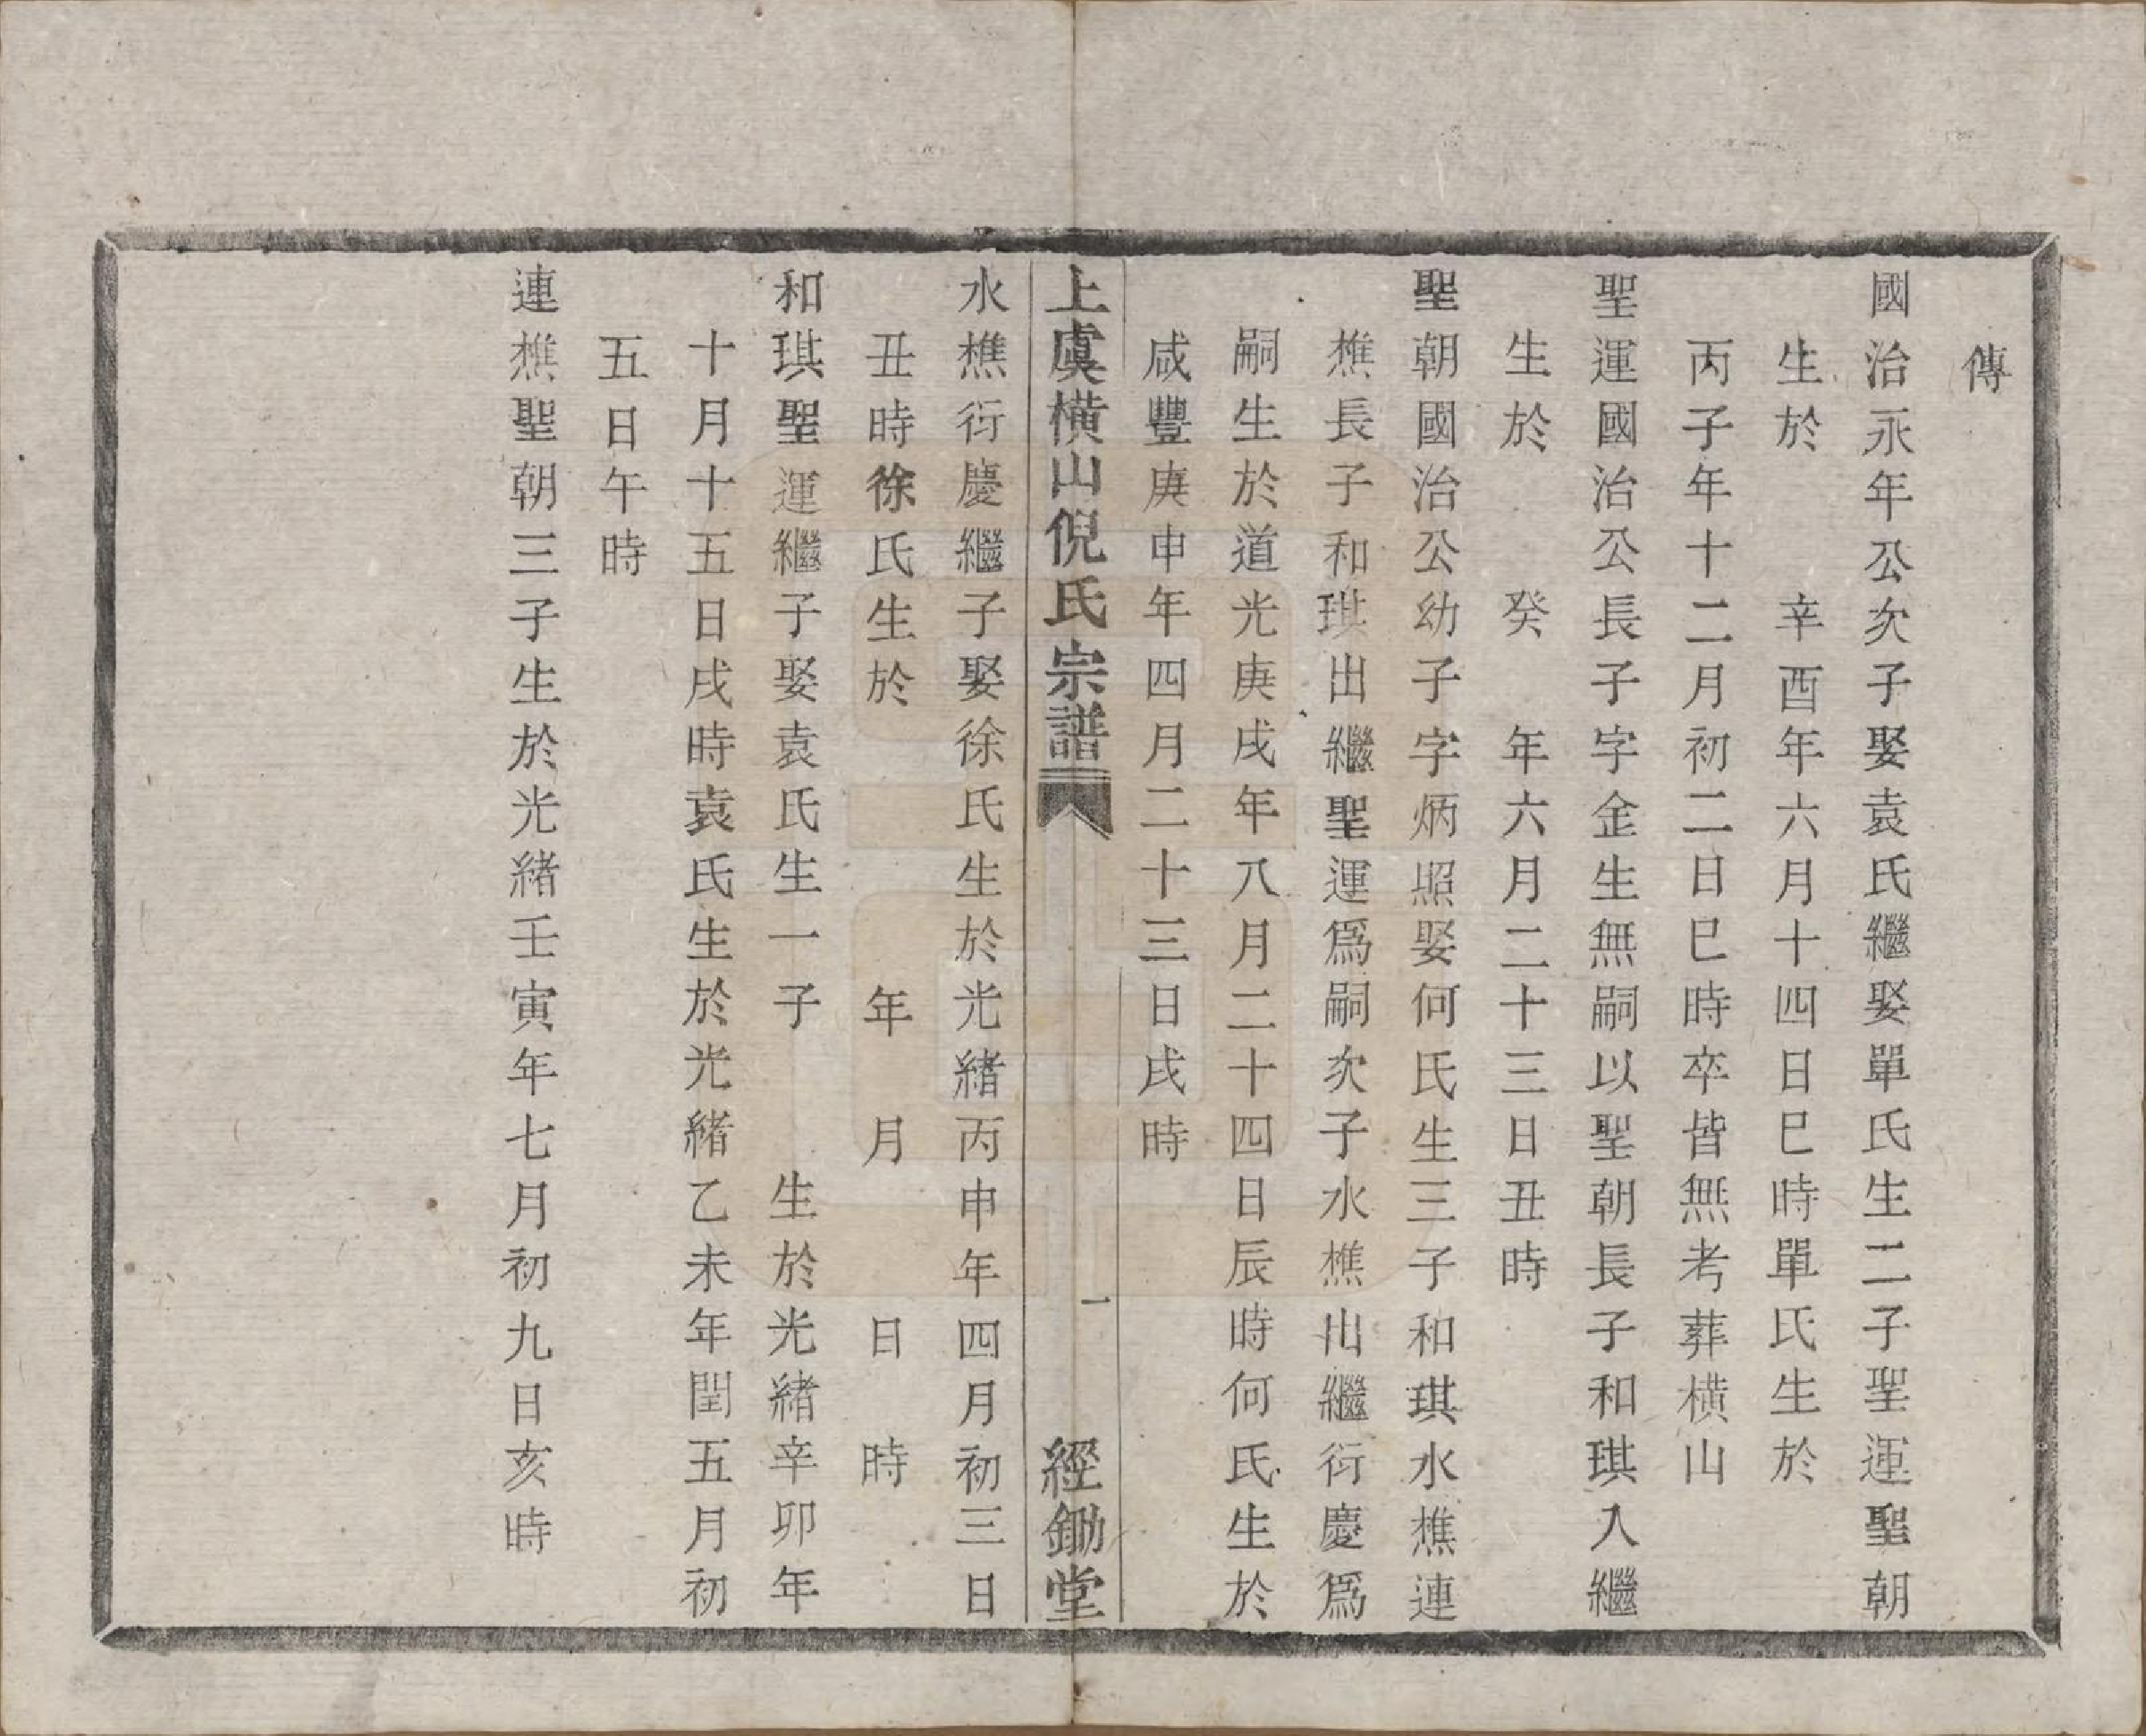 傳
國治永年公次子娶袁氏繼娶單氏生二子聖運聖朝
生於　　辛酉年六月十四日巳時單氏生於
丙子年十二月初二日巳時卒皆無考葬橫山
聖運國治公長子字金生無嗣以聖朝長子和琪入繼
生於　　癸　年六月二十三日丑時
聖朝國治公幼子字炳照娶何氏生三子和琪水樵連
樵長子和琪出繼聖運爲嗣次子水樵出繼衍慶爲
嗣生於道光庚戌年八月二十四日辰時何氏生於
咸豐庚申年四月二十三日戌時
上虞橫山倪氏宗譜
一
經鋤堂
水樵衍慶繼子娶徐氏生於光緒丙申年四月初三日
丑時徐氏生於　　　　年　月　　日　時
和琪聖運繼子娶袁氏生一子　　生於光緒辛卯年
十月十五日戌時袁氏生於光緒乙未年閏五月初
五日午時
連樵聖朝三子生於光緒壬寅年七月初九日亥時